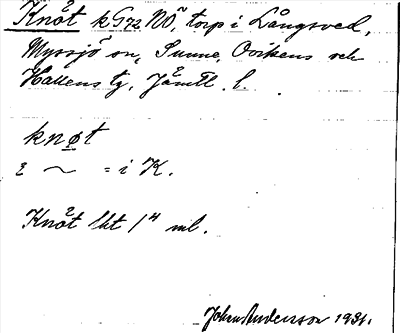 Knåt kG72 NÖ, torp i Långsved,
Myssjö sn, Sunne, Ovikens och
Hallens tg, Jämtl. l.
knøt
i ~ = i K.
Knåt lht 1/4 ml.
John Andersson 1931.